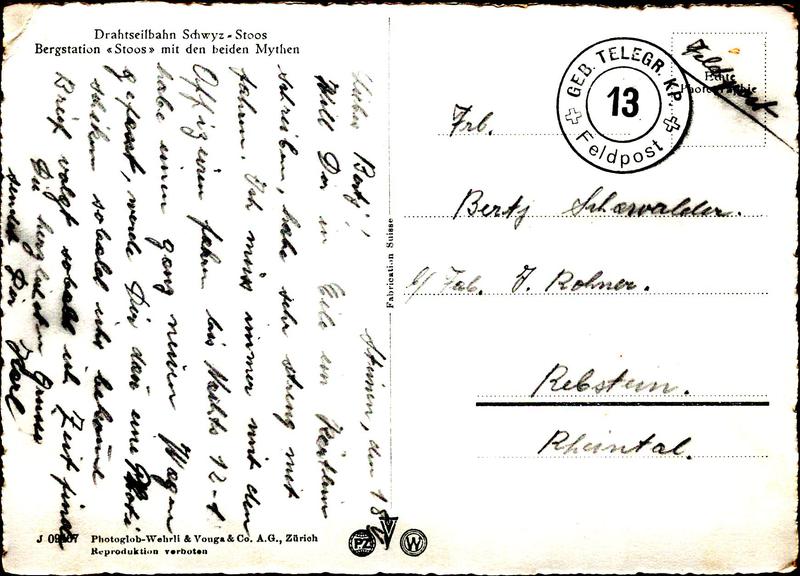 Drahtseilbahn Schwyz - Stoos
Bergstation «Stoos» mit den beiden Mythen
den 18.
Lieber Bertj!
Will Dir in Eile ein Kärtlein
schreiben, habe sehr streng mit
fahren. Ich muss immer mit den
Offizieren fahren bis Nachts 12-1
habe einen ganz neuen Wagen
gefasst, werde Dir dan eine Photo
schiken sobald ich bekomme
Brief volgt sobald ich Zeit finde
Die herzlichsten Grüsse
sendet Dir Karl
J 09 Photoglob-Wehrli & Vouga & Co. A.G., Zürich
Reproduktion verboten
Fabrication Suisse
PZ
W
GEB. TELEGR. KP.
13
Feldpost
Feldpost
Echte
Photographie
Frl.
Bertj Schawalder.
Fab. J. Rohner.
Rebstein.
Rheintal.